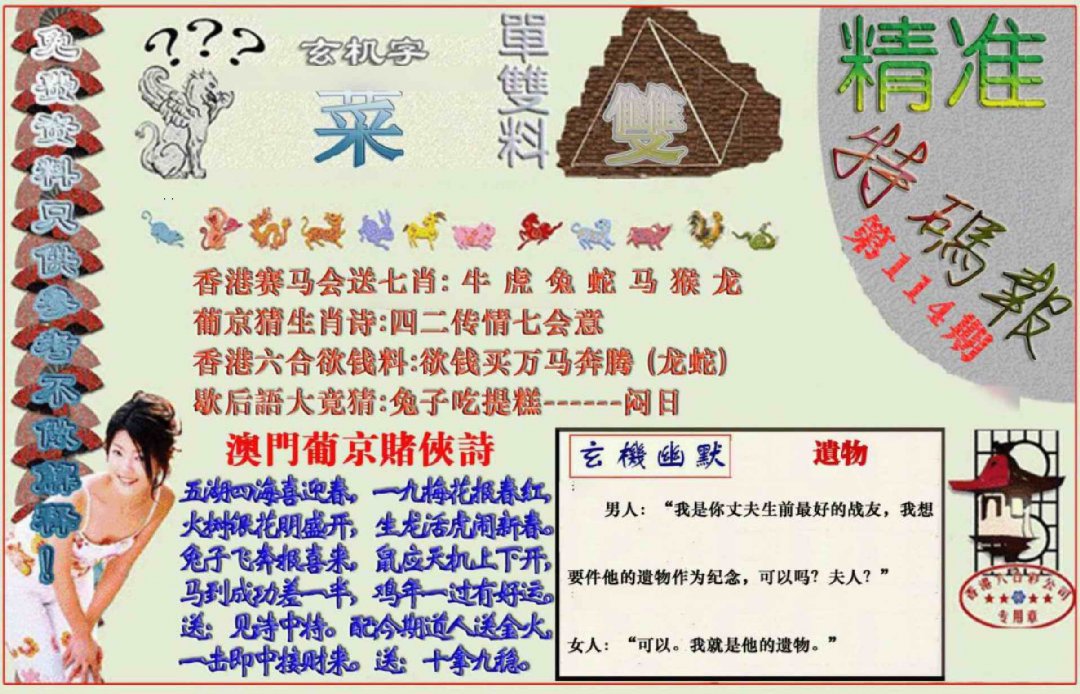 免费资料只供参考不做标杆！
???
玄机字
菜
單雙料
雙
精准
特碼報
第114期
香港赛马会送七肖: 牛 虎 兔 蛇 马 猴 龙
葡京猜生肖诗:四二传情七会意
香港六合欲钱料:欲钱买万马奔腾 (龙蛇)
歇后語大竟猜:兔子吃提糕------闷日
澳門葡京賭俠詩
五湖四海喜迎春。 一九梅花报春红,
火树银花明盛开, 生龙活虎闹新春。
兔子飞奔报喜来。 鼠应天机上下开,
马到成功差一半, 鸡年一过有好运。
送: 见诗中特。配今期道人送金火,
一击即中接财来。送: 十拿九稳。
玄機幽默
遺物
男人：“我是你丈夫生前最好的战友，我想
要件他的遗物作为纪念，可以吗？夫人？”
女人：“可以。我就是他的遗物。”
香港六合彩公司
专用章